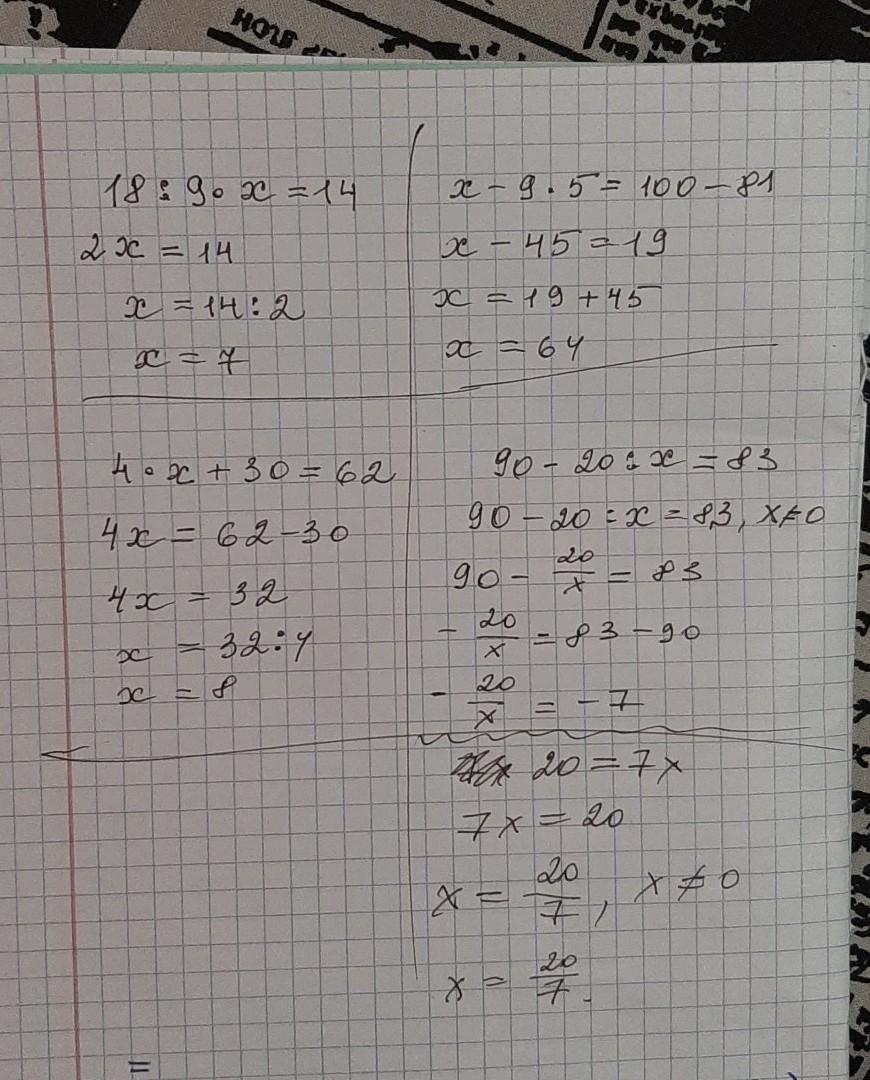 18 : 9 · x = 14
2x = 14
x = 14 : 2
x = 7
x - 9 · 5 = 100 - 81
x - 45 = 19
x = 19 + 45
x = 64
4 · x + 30 = 62
4x = 62 - 30
4x = 32
x = 32 : 4
x = 8
90 - 20 : x = 83
90 - 20 : x = 83, x ≠ 0
90 - 20/x = 83
- 20/x = 83 - 90
- 20/x = - 7
20 = 7x
7x = 20
x = 20/7, x ≠ 0
x = 20/7.
=